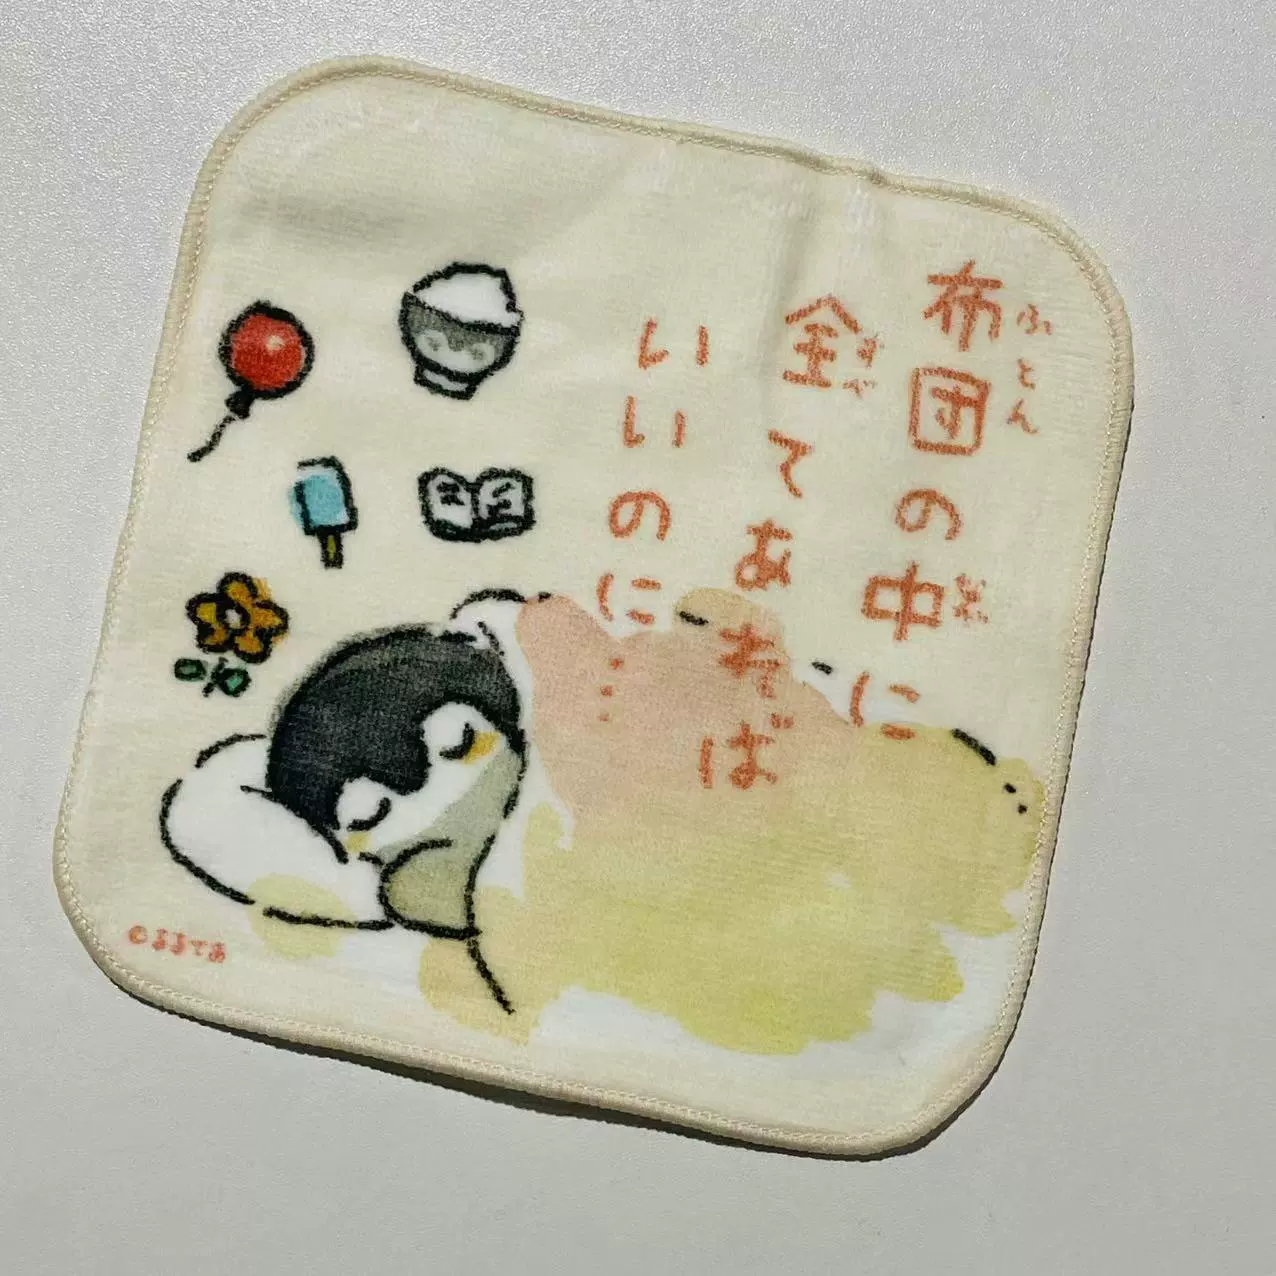 布団の中に
ふとん
なか
全てあれば
すべ
いいのに…
©るるてあ